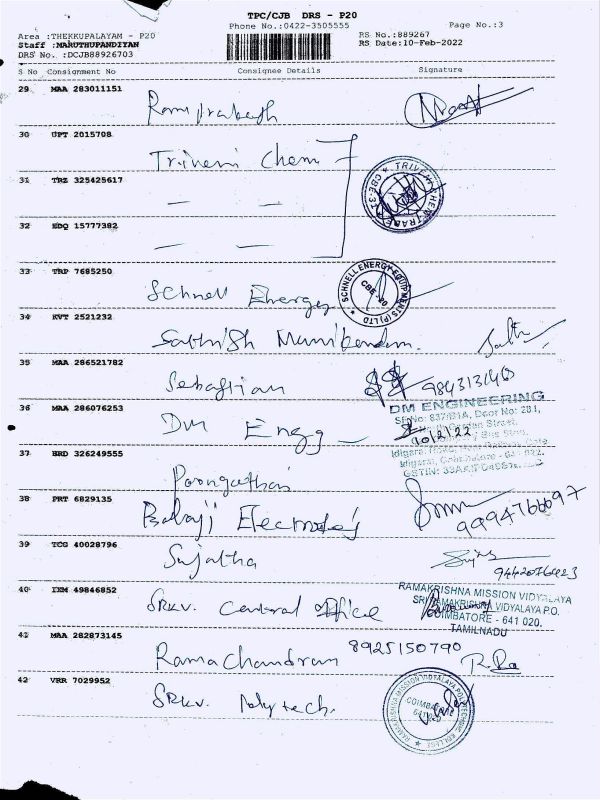 TPC/CJB DRS - P20
Phone No.:0422-3505555
Page No.:3
Area :THEKKUPALAYAM - P20
Staff :MARUTHUPANDIYAN
DRS No. :DCJB88926703
RS No.:889267
RS Date:10-Feb-2022
S No Consignment No Consignee Details Signature
29 MAA 283011151
Ramprakash
30 UPT 2015708
Triveni Chem
31 TRZ 325425617
32 EDQ 15777382
33 TRP 7685250
Schnell Energy
SCHNELL ENERGY EQUIPMENTS (P) LTD
CBE-20
34 KVT 2521232
Sathish Munikandan.
35 MAA 286521782
Sebastian
36 MAA 286076253
DM Engg
DM ENGINEERING
10/2/22
37 BRD 326249555
Poongathai
38 PRT 6829135
Balaji Electrodes
9994766097
39 TCG 40028796
Sujatha
9442076423
40 IXM 49846852
SRKV. Central Office
RAMAKRISHNA MISSION VIDYALAYA
SRI RAMAKRISHNA VIDYALAYA P.O.
COIMBATORE - 641 020.
TAMILNADU
41 MAA 282873145
Ramachandran 8925150790
42 VRR 7029952
SRKV. Polytech.